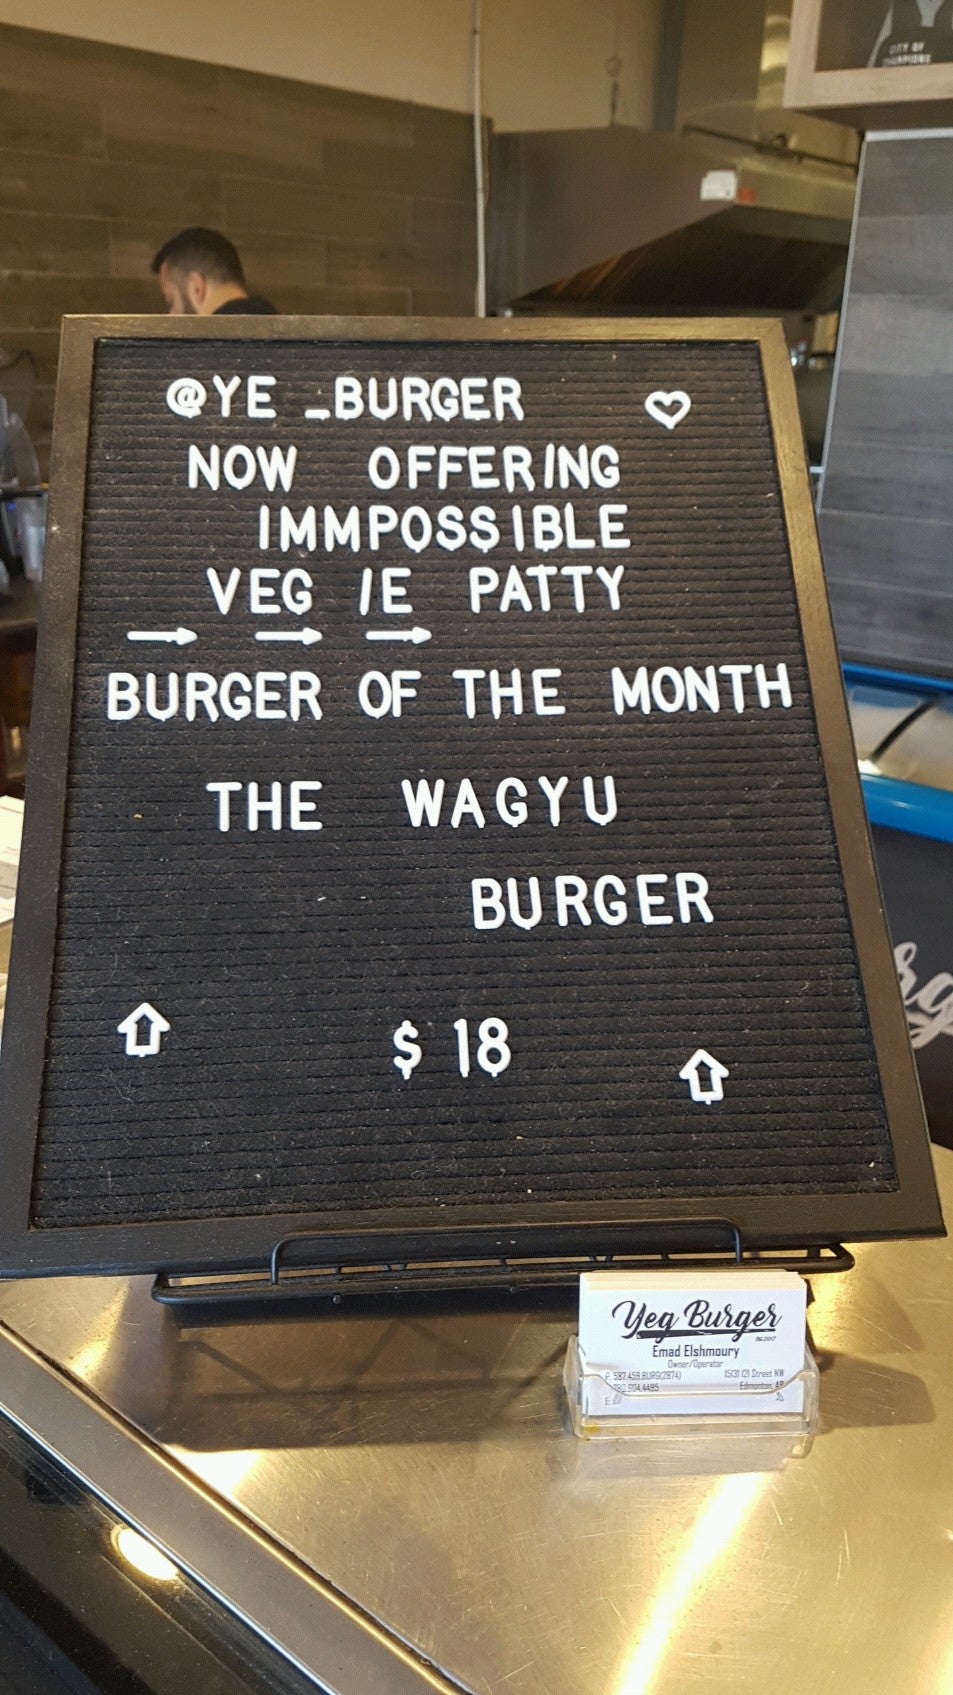 CITY OF
CHAMPIONS
@YE _BURGER
NOW OFFERING
IMMPOSSIBLE
VEG IE PATTY
BURGER OF THE MONTH
THE WAGYU
BURGER
$ 18
Yeg Burger
Est.2017
Emad Elshmoury
Owner/Operator
P: 587.459.BURG(2874)
15131 121 Street NW
780.604.4495
Edmonton, AB
E: